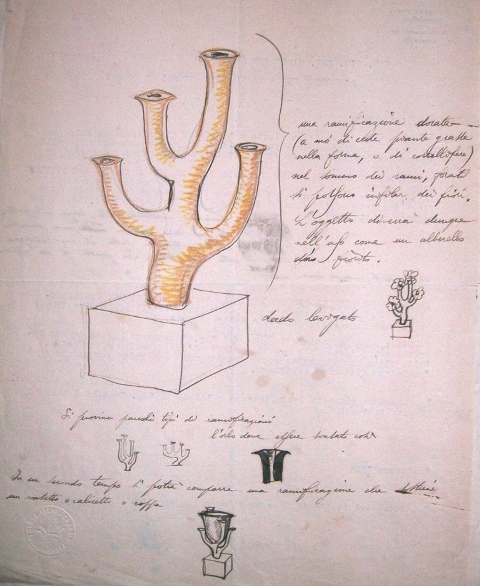 una ramificazione dorata
(a mo' di certe piante grasse
nella forma, o di corallofore)
nel sommo dei rami, forati
si possono infilar dei fiori.
L'oggetto diverrà dunque
nell'uso come un alberello
fiorito.
dado levigato
Si provino parecchi tipi di ramificazioni
l'orlo deve essere svoltato così
In un secondo tempo si potrà comporre una ramificazione che
un vasetto o calicetto o coppa